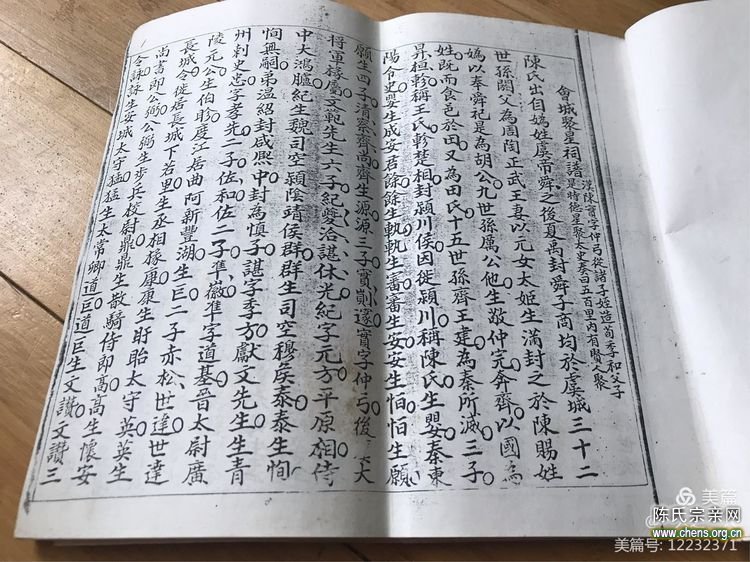 會城聚星祠譜
漢陳寔字仲弓從諸子姪造荀季和父子
是時德星聚太史奏曰五百里內有賢人聚
陳氏出自媯姓虞帝舜之後夏禹封舜子商均於虞城三十二
世孫閼父為周陶正武王妻以元女太姬生滿封之於陳賜姓
媯以奉舜祀是為胡公九世孫厲公他生敬仲完奔齊以國為
姓既而食邑於田又為田氏十五世孫齊王建為秦所滅三子
昇桓軫稱王氏軫楚相封潁川侯因徙潁川稱陳氏生嬰秦東
陽令史嬰生成安君餘餘生軌軌生審審生安安生怕怕生願
願生四子清察齊尚齊生源源三子寔䫻邃寔字仲弓後大
將軍掾屬文範先生六子紀夔洽諶休光紀字元方平原相侍
中大鴻臚紀生魏司空潁陰靖侯群群生司空穆侯泰泰生恂
恂無嗣弟溫紹封咸熙中封為慎子諶字季方獻文先生生青
州刺史忠字孝先二子佐和佐二子準徽準字道基晉太尉廣
陵元公生伯眕度江居曲阿新豐湖生巨二子赤松世逹世逹
長城令徙居長城下若里生丞相掾康康生盱眙太守英英生
尚書郎公弼公弼生步兵校尉鼎鼎生散騎侍郎高高生懷安
令詠詠生安城太守猛猛生太常卿道巨道巨生文讚文讚三
美篇
陈氏宗亲网
www.chens.org.cn
美篇号: 12232371